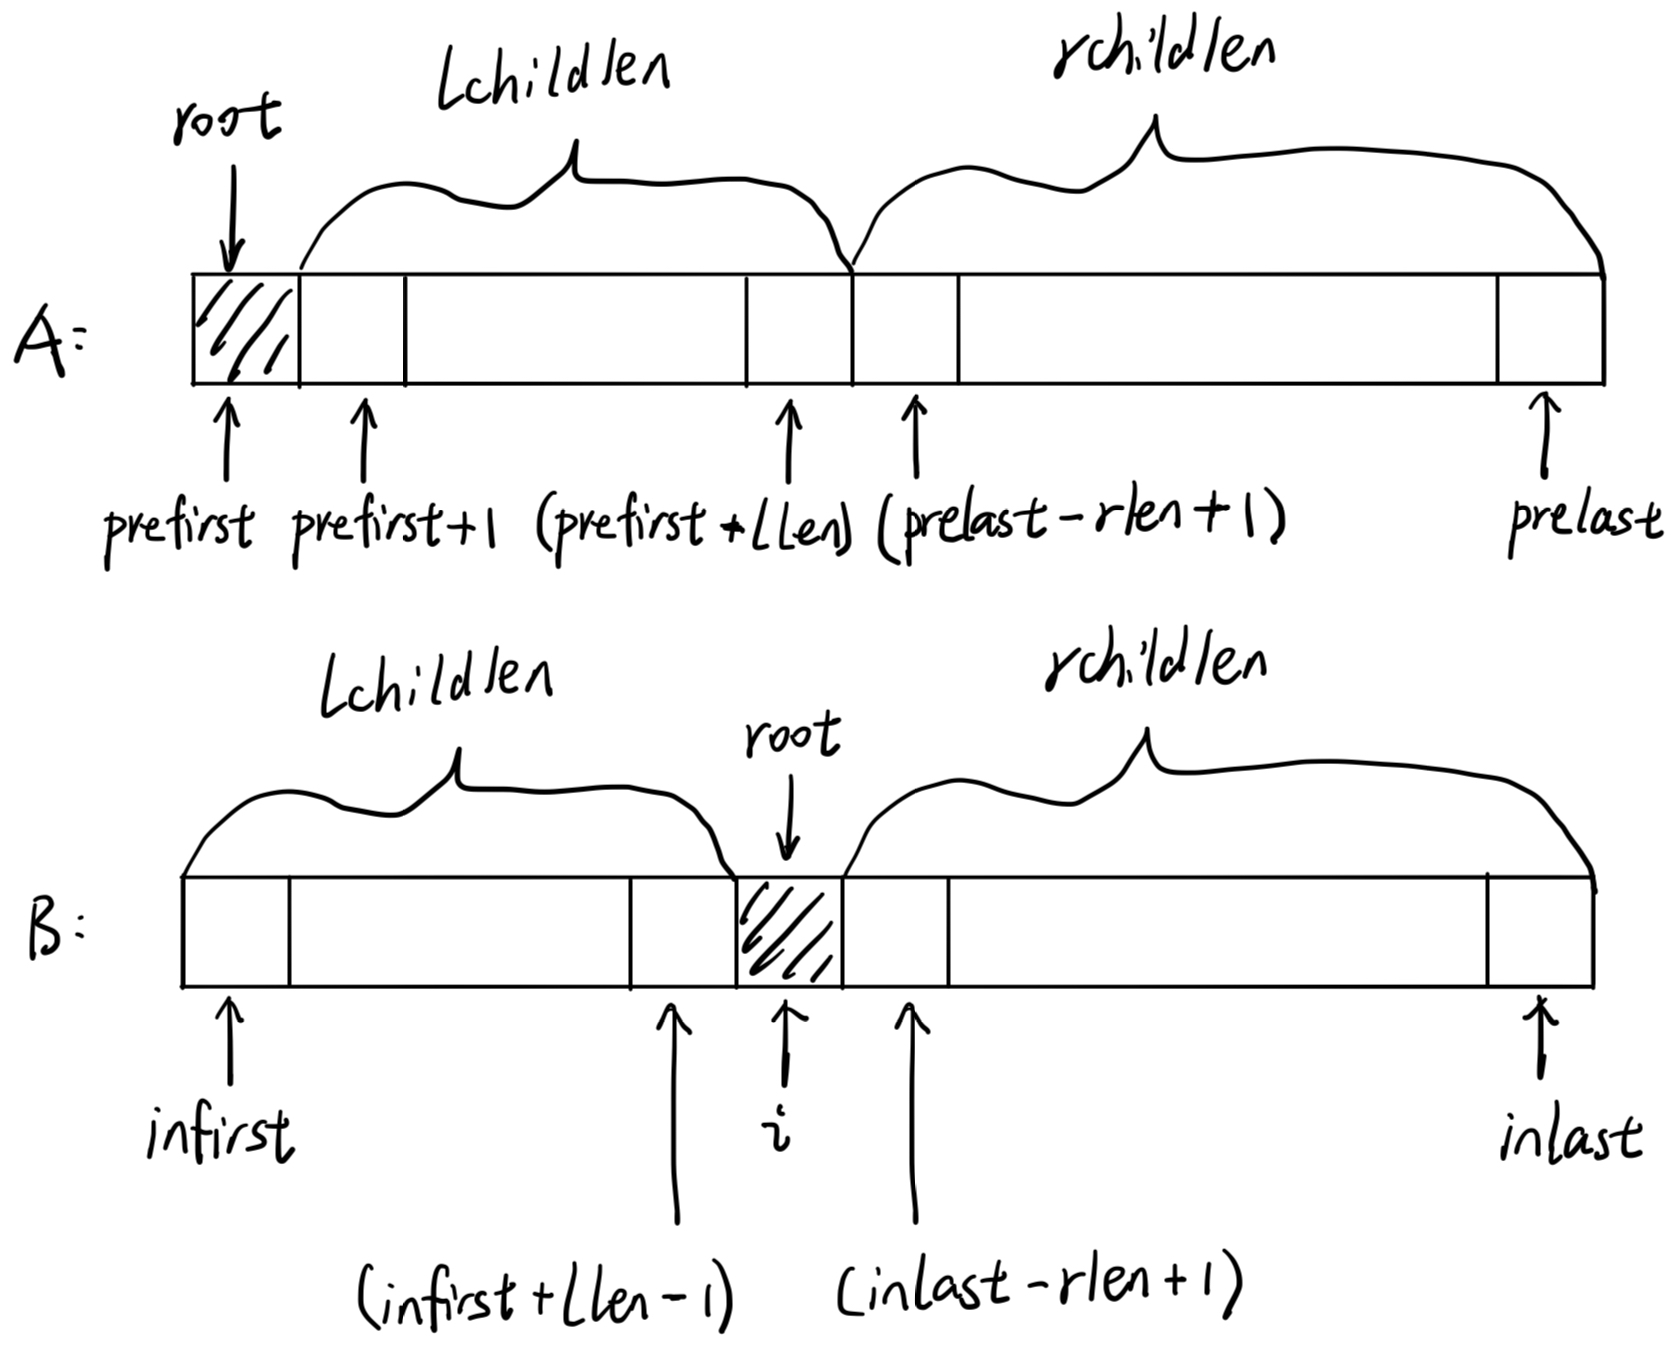 Lchildlen
rchildlen
root
A:
prefirst prefirst+1 (prefirst+Llen) (prelast-rlen+1) prelast
Lchildlen
rchildlen
root
B:
infirst
i
inlast
(infirst+Llen-1) (inlast-rlen+1)